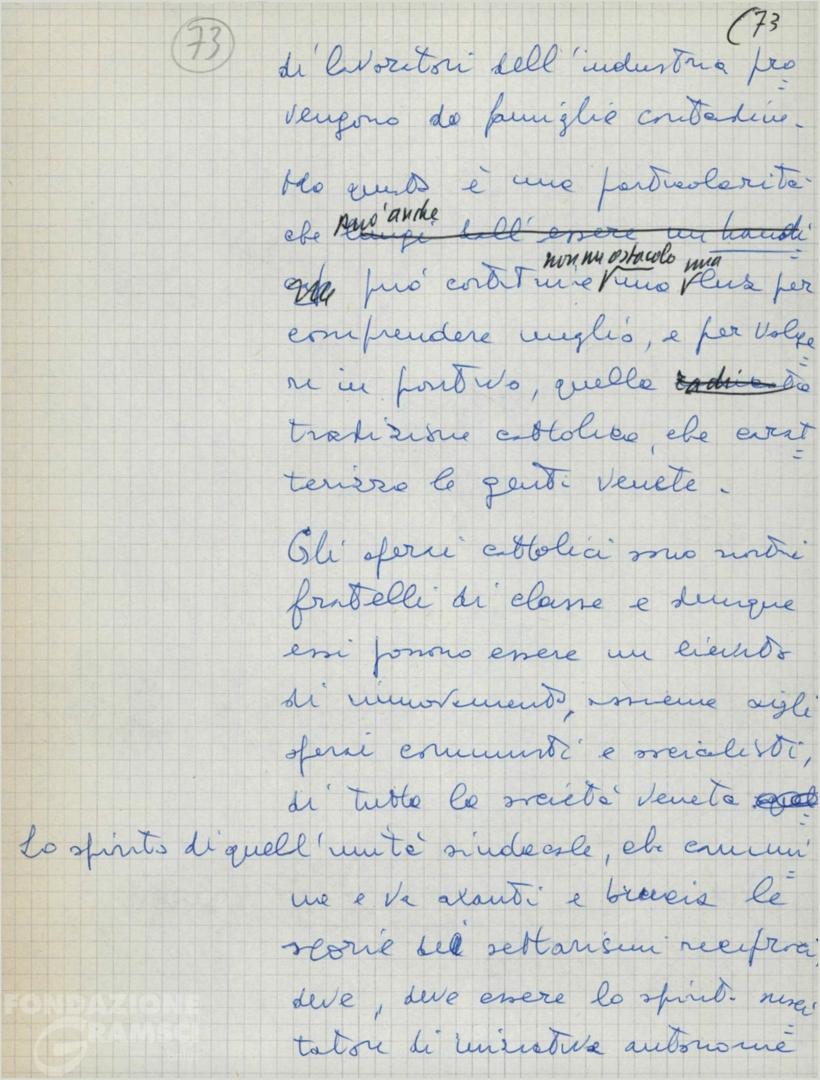 73
(73
di lavoratori dell'industria pro=
vengono da famiglie contadine.
Ma questo è una particolarità
può anche
che lungi dall'essere un handi=
non un ostacolo una
può costituire una plus per
comprendere meglio, e per volge=
re in positivo, quella radicata
tradizione cattolica, che carat=
terizza le genti venete.
Gli operai cattolici sono nostri
fratelli di classe e dunque
essi possono essere un lievito
di rinnovamento, assieme agli
operai comunisti e socialisti,
di tutta la società veneta
Lo spirito di quell'unità sindacale, che cammi=
na e va avanti e brucia le
scorie dei settarismi reciproci,
deve, deve essere lo spirito susci=
tatore di iniziativa autonome
FONDAZIONE
GRAMSCI